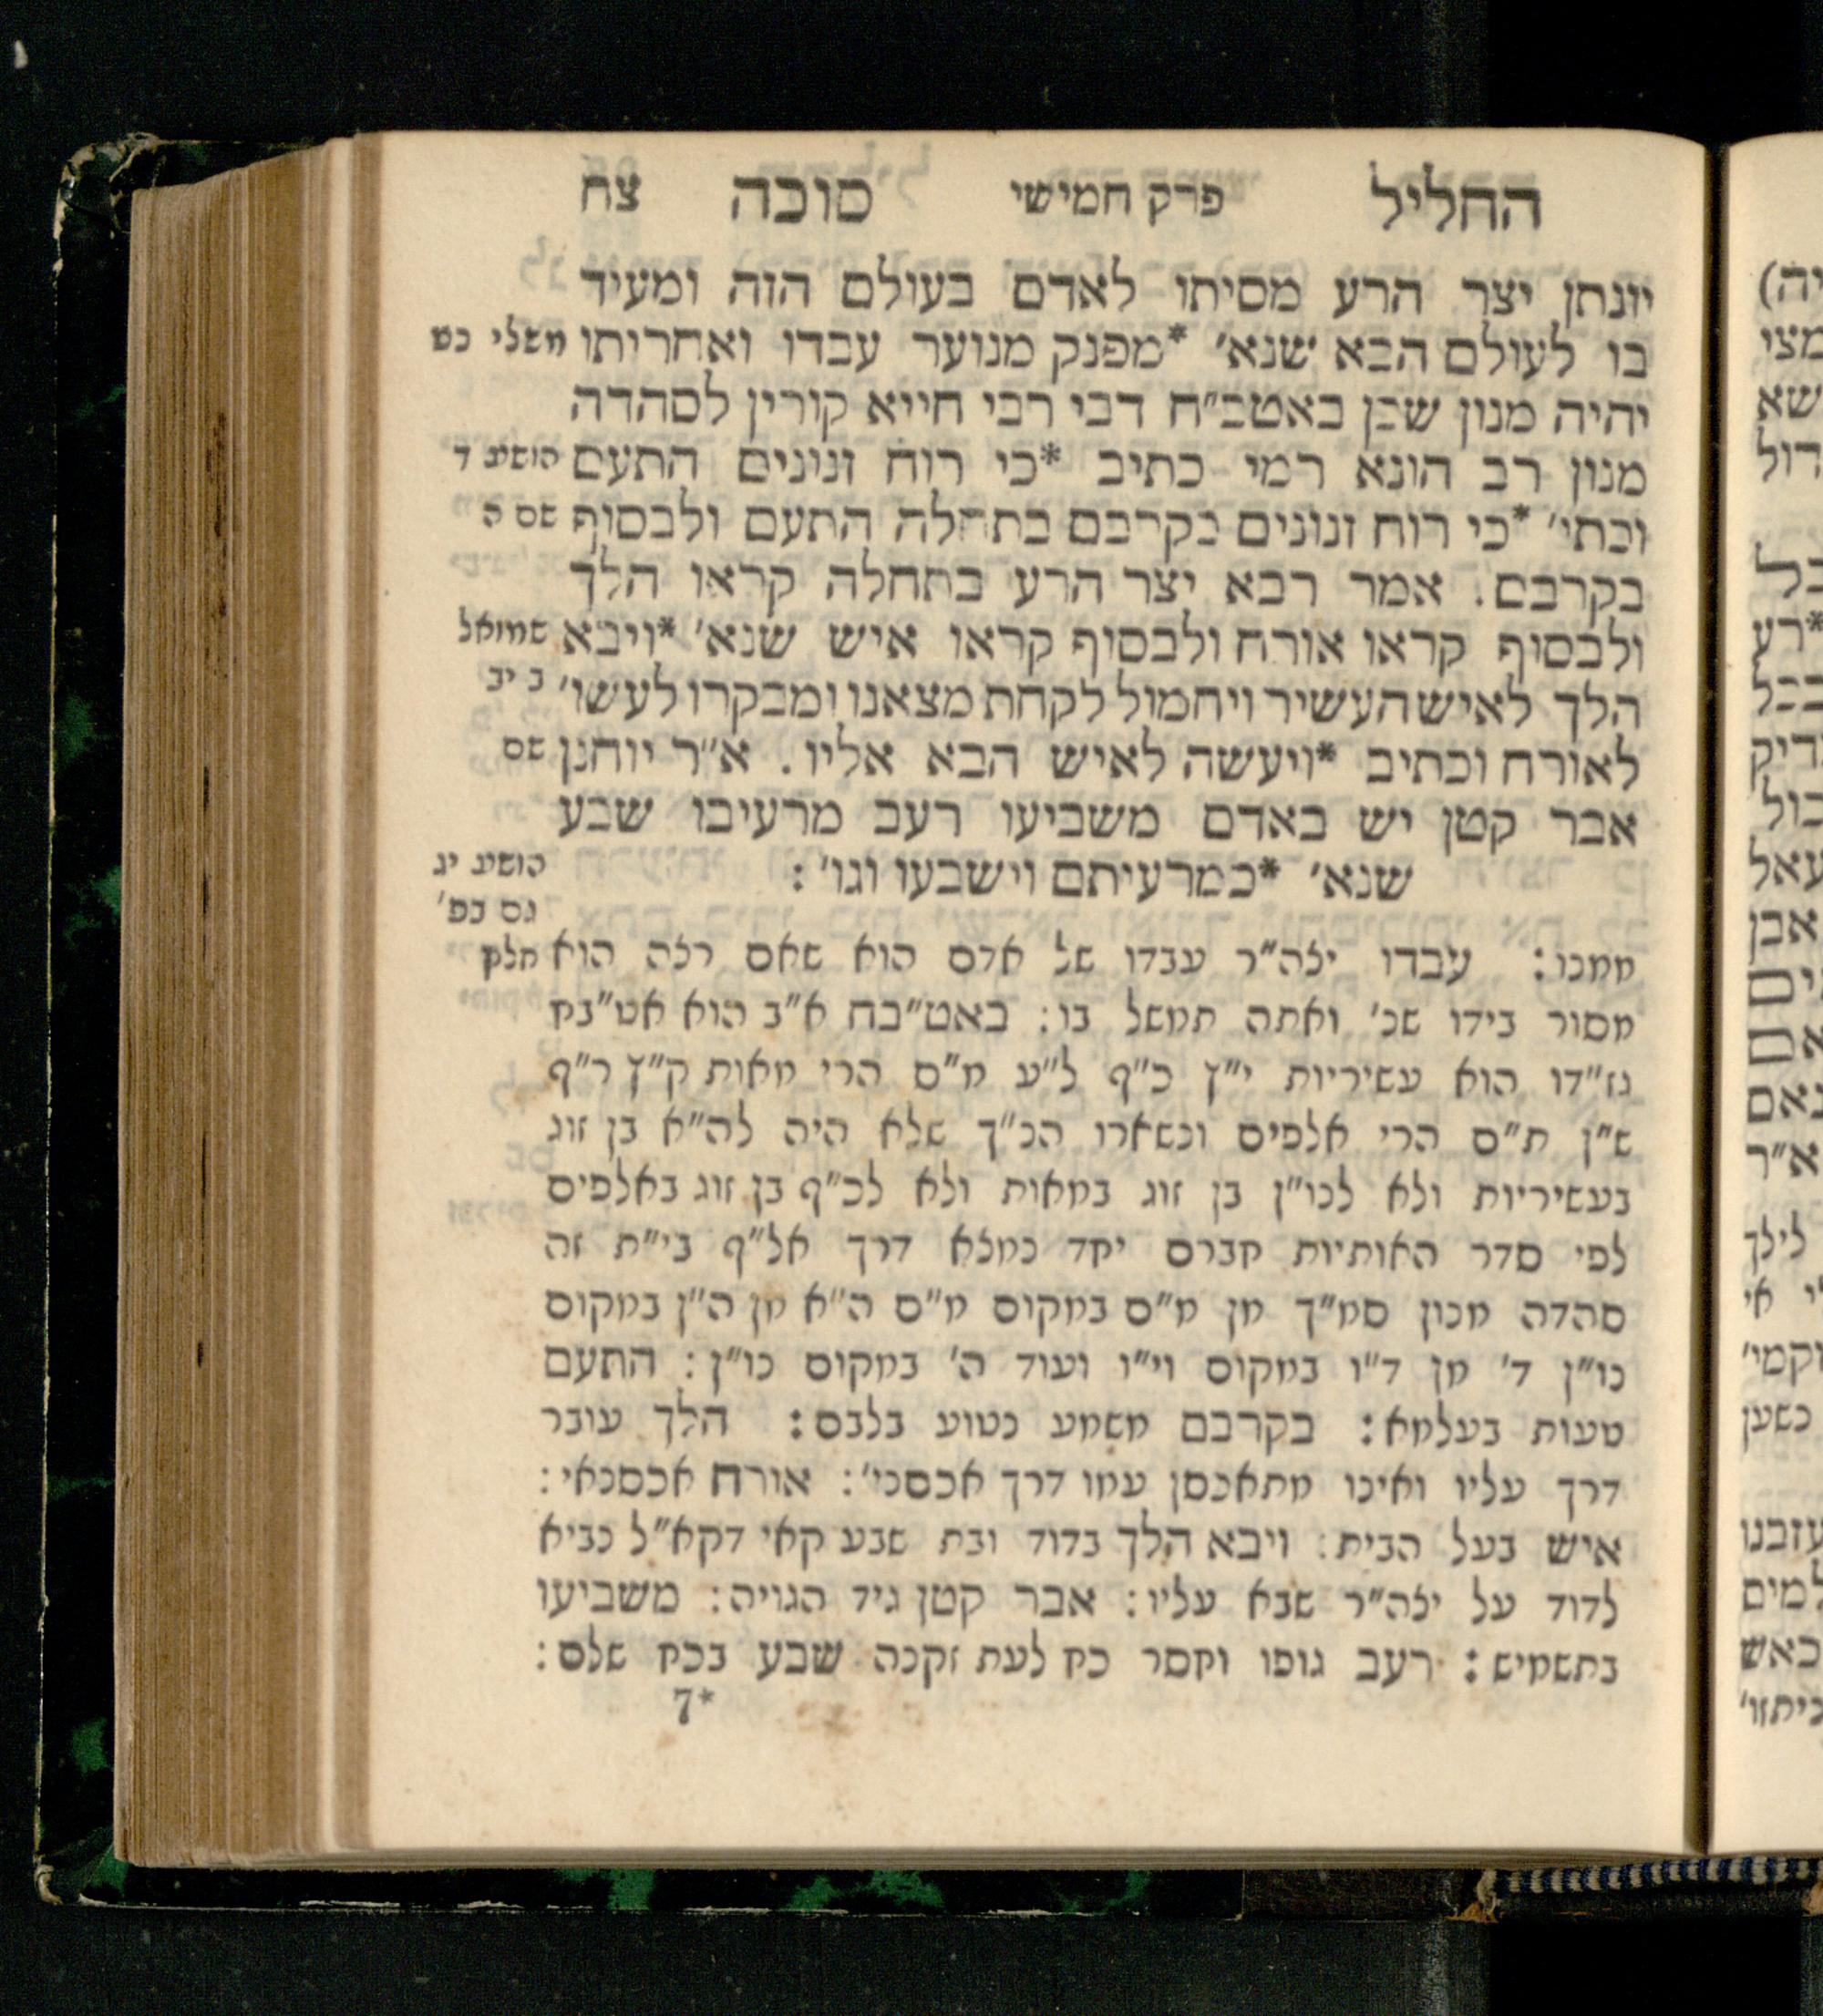 החליל פרק חמישי סוכה צח
יונתן יצר הרע מסיתו לאדם בעולם הזה ומעיד
בו לעולם הבא שנא׳ *מפנק מנוער עבדו ואחריתו משלי כט
יהיה מנון שכן באטב״ח דבי רבי חייא קורין לסהדה
מנון רב הונא רמי כתיב *כי רוח זנונים התעם הושיע ד
וכתי׳ *כי רוח זנונים בקרבם בתחלה התעם ולבסוף שם ה
בקרבם. אמר רבא יצר הרע בתחלה קראו הלך
ולבסוף קראו אורח ולבסוף קראו איש שנא׳ *ויבא שמואל
הלך לאיש העשיר ויחמול לקחת מצאנו ומבקרו לעשו׳ ב יב
לאורח וכתיב *ויעשה לאיש הבא אליו. א״ר יוחנן שם
אבר קטן יש באדם משביעו רעב מרעיבו שבע
שנא׳ *כמרעיתם וישבעו וגו׳: הושיע יג
גם בפ׳
ממנו: עבדו ילה״ר עבדו של אדם הוא שאם רצה הוא חלק
מסור בידו שנ׳ ואתה תמשל בו: באט״בח א״ב הוא אט״בח
גז״דו הוא עשיריות י״ץ כ״ף ל״ע מ״ס הרי מאות ק״ץ ר״ף
ש״ן ת״ם הרי אלפים ונשארו הנ״ך שלא היה לה״א בן זוג
בעשיריות ולא לנו״ן בן זוג במאות ולא לכ״ף בן זוג באלפים
לפי סדר האותיות חברם יחד נמצא דרך אל״ף בי״ת זה
סהדה מנון סמ״ך מן מ״ס במקום מ״ם ה״א מן ה״ן במקום
נו״ן ד׳ מן ד״ו במקום וי״ו ועוד ה׳ במקום נו״ן: התעם
טעות בעלמא: בקרבם משמע נטוע בלבם: הלך עובר
דרך עליו ואינו מתאכסן עמו דרך אכסני׳: אורח אכסנאי:
איש בעל הבית: ויבא הלך בדוד ובת שבע קאי דקא״ל נביא
לדוד על יצה״ר שבא עליו: אבר קטן גיד הגויה: משביעו
בתשמיש: רעב גופו וחסר כח לעת זקנה שבע בכח שלם:
7*